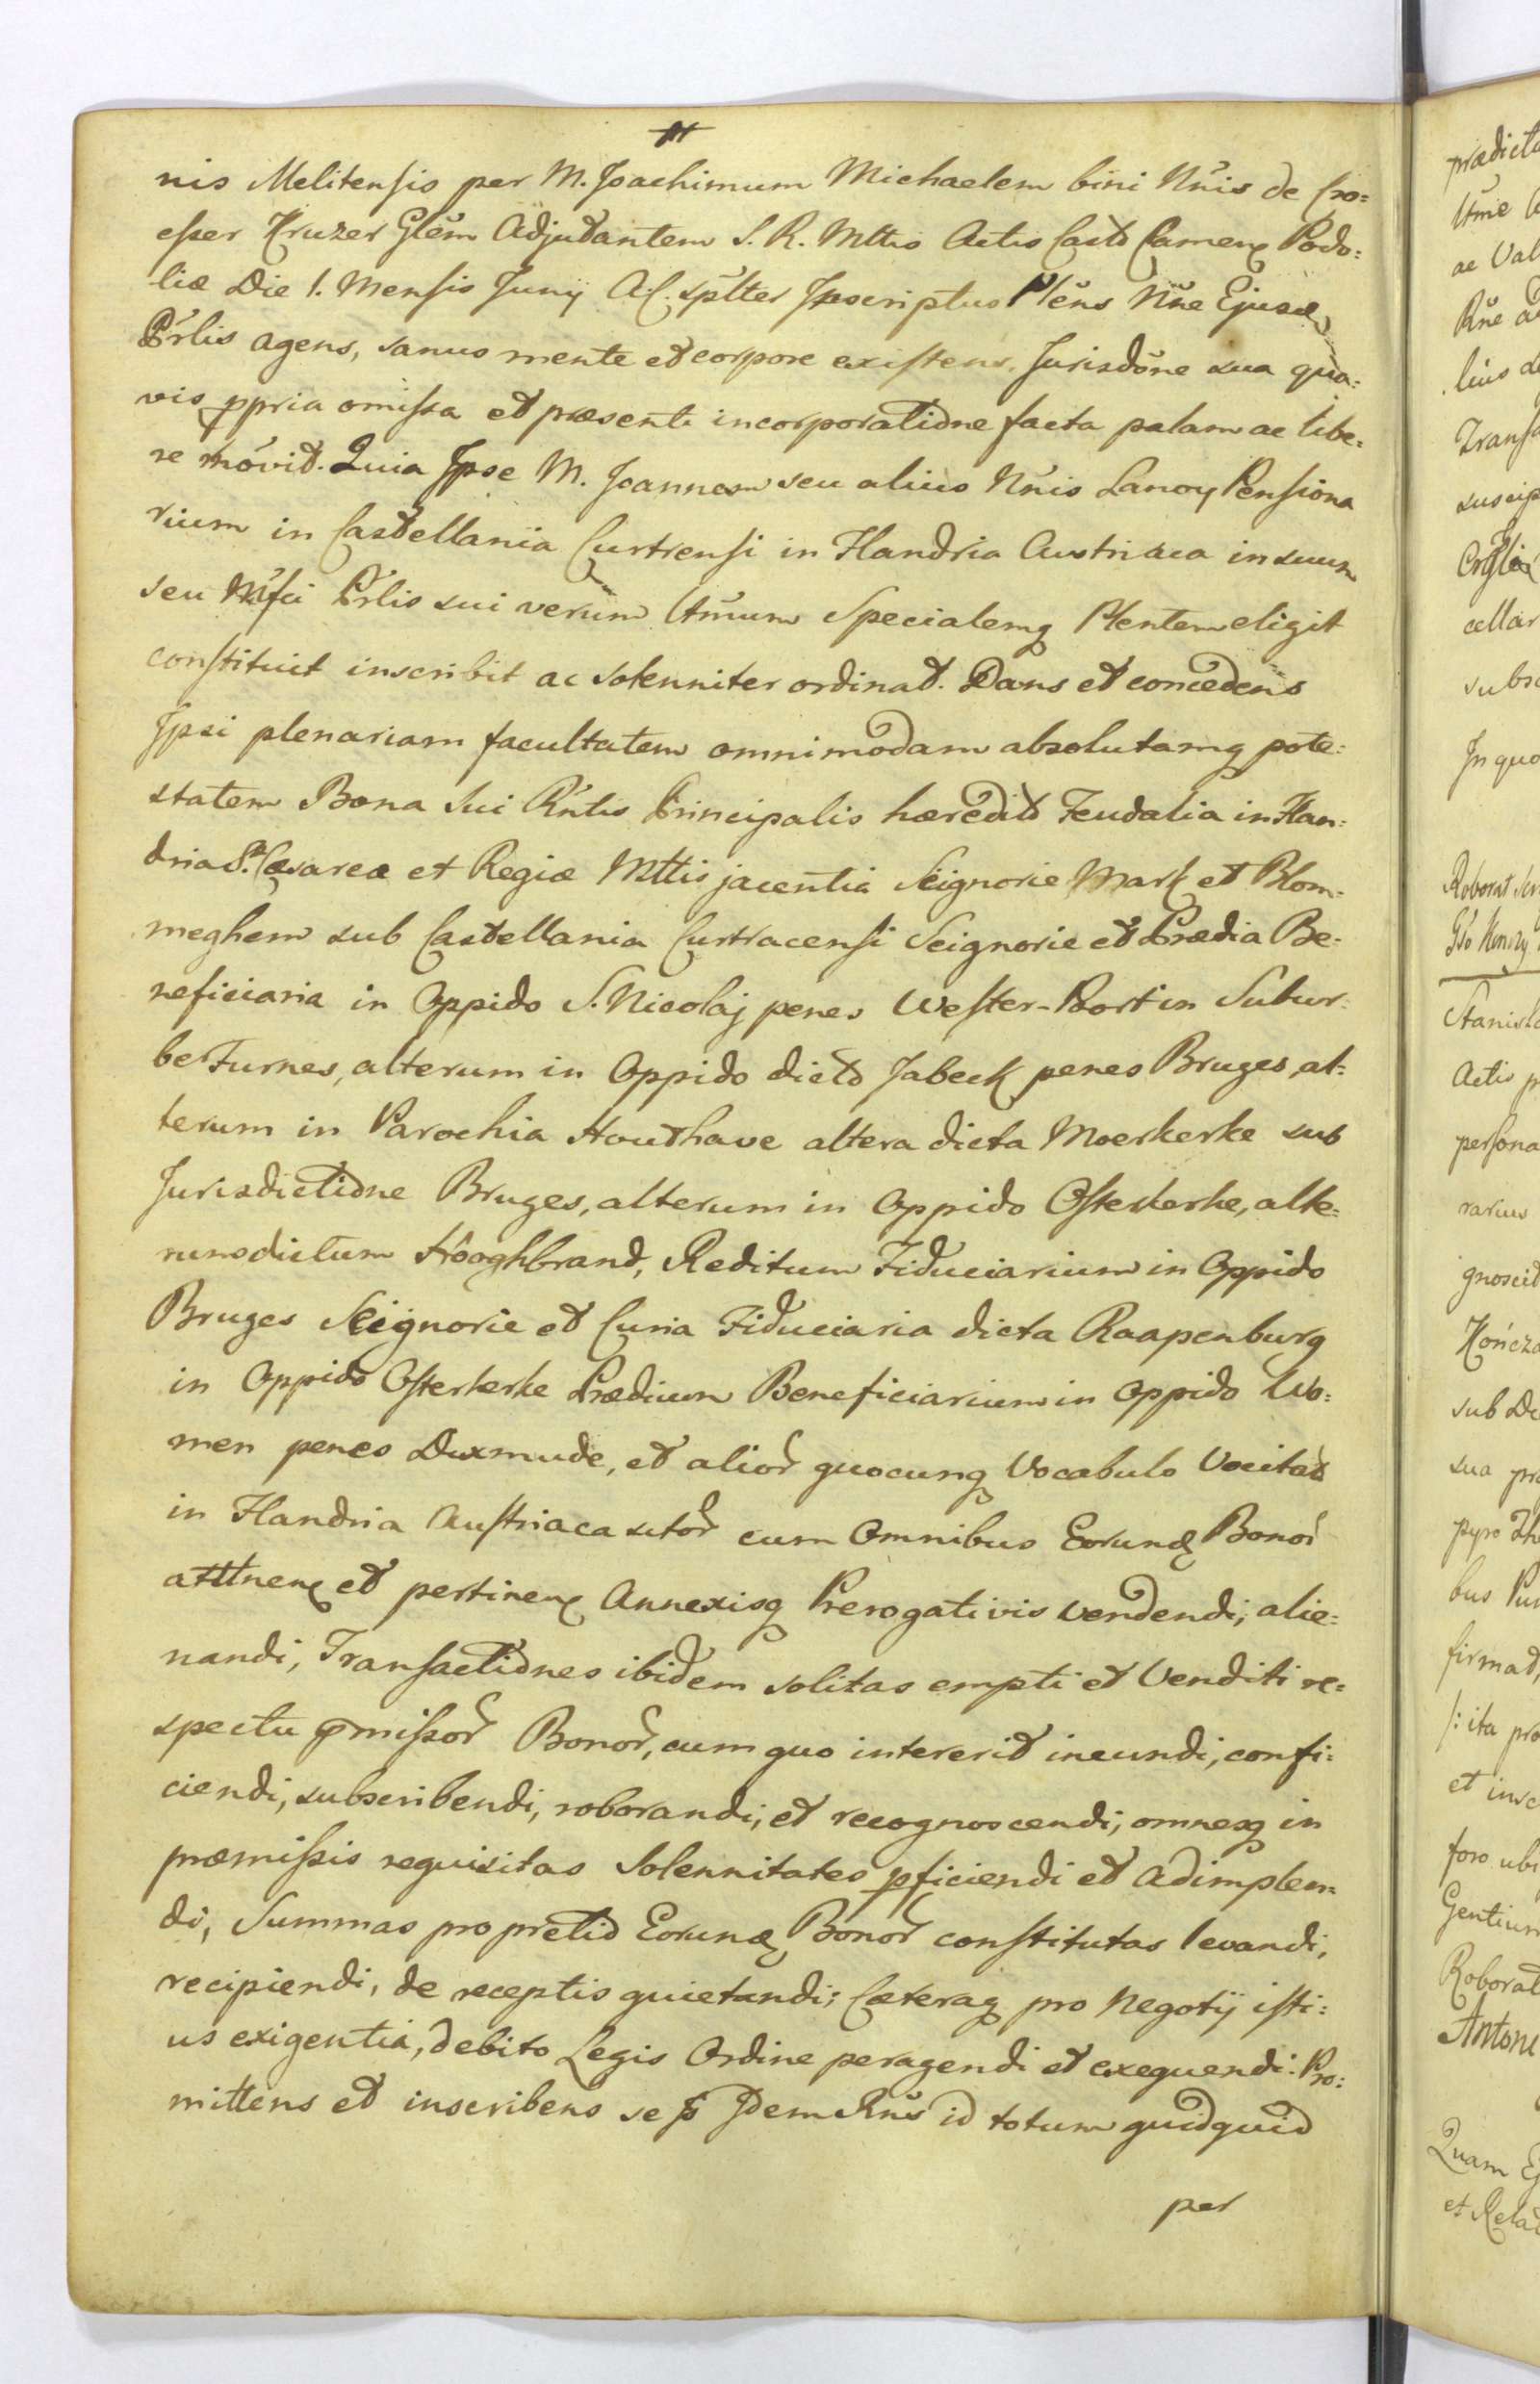 nis Melitensis per M. Joachimum Michaelem bini Nn̄is de Cro=
esser Kruzer Glēm Adjudantem S. R. Mttis Actis Castr Camene Podo=
liæ Die 1. Mensis Junÿ A.C. splter Inscriptus Plēns Nn̄e Ejusd
Prlis agens, sanus mente et corpore existens, Jurisdōne sua qua=
vis ppria omissa et præsenti incorporatione facta palam ac libe=
re mōvit. Quia Ipse M. Joannem seu alius Nn̄is Lanoy Pensiona
rium in Castellania Curtrensi in Flandria Austriaca in suum
seu Mfci Prlis sui verum Ltmum Specialemq Plentem eligit
constituit inscribit ac solenniter ordinat. Dans et concedens
Ipsi plenariam facultatem omnimodam absolutamq pote=
statem Bona Sui Rntis Principalis hæredit Feudalia in Flan=
dria S. Cæsareæ et Regiæ Mttis jacentia Seignorie Mark et Blom=
meghem sub Castellania Curtracensi Seignorie et Prædia Be=
neficiaria in Oppido S. Nicolaj penes Wester-Poort in Subur=
be Furnes, alterum in Oppido dicto Jabeck penes Bruges, al=
terum in Parochia Houthave altera dicta Moerkerke sub
Jurisdictione Bruges, alterum in Oppido Osterkerke, alte=
rum dictum Hooghbrand, Reditum Fiduciarium in Oppido
Bruges Seignorie et Curia Fiduciaria dicta Raapenburg
in Oppido Osterkerke Prædium Beneficiarium in Oppido Wo=
men penes Dixmude, et alior quocunq Vocabulo Vocitat
in Flandria Austriaca sitor cum Omnibus Eorund Bonor
attinen et pertinen Annexisq Prerogativis vendendi, alie=
nandi, Transactiones ibidem solitas empti et Venditi re=
spectu pmissor Bonor, cum quo intererit ineundi, confi=
ciendi, subscribendi, roborandi, et recognoscendi, omnesq in
præmissis requisitas Solennitates pficiendi et adimplen=
di, Summas pro pretio Eorund Bonor constitutas levandi,
recipiendi, de receptis quietandi; Cæteraq pro Negotÿ isti=
us exigentia, debito Legis Ordine peragendi et exequendi. Pro=
mittens et inscribens se Idem Rns id totum quidquid
per